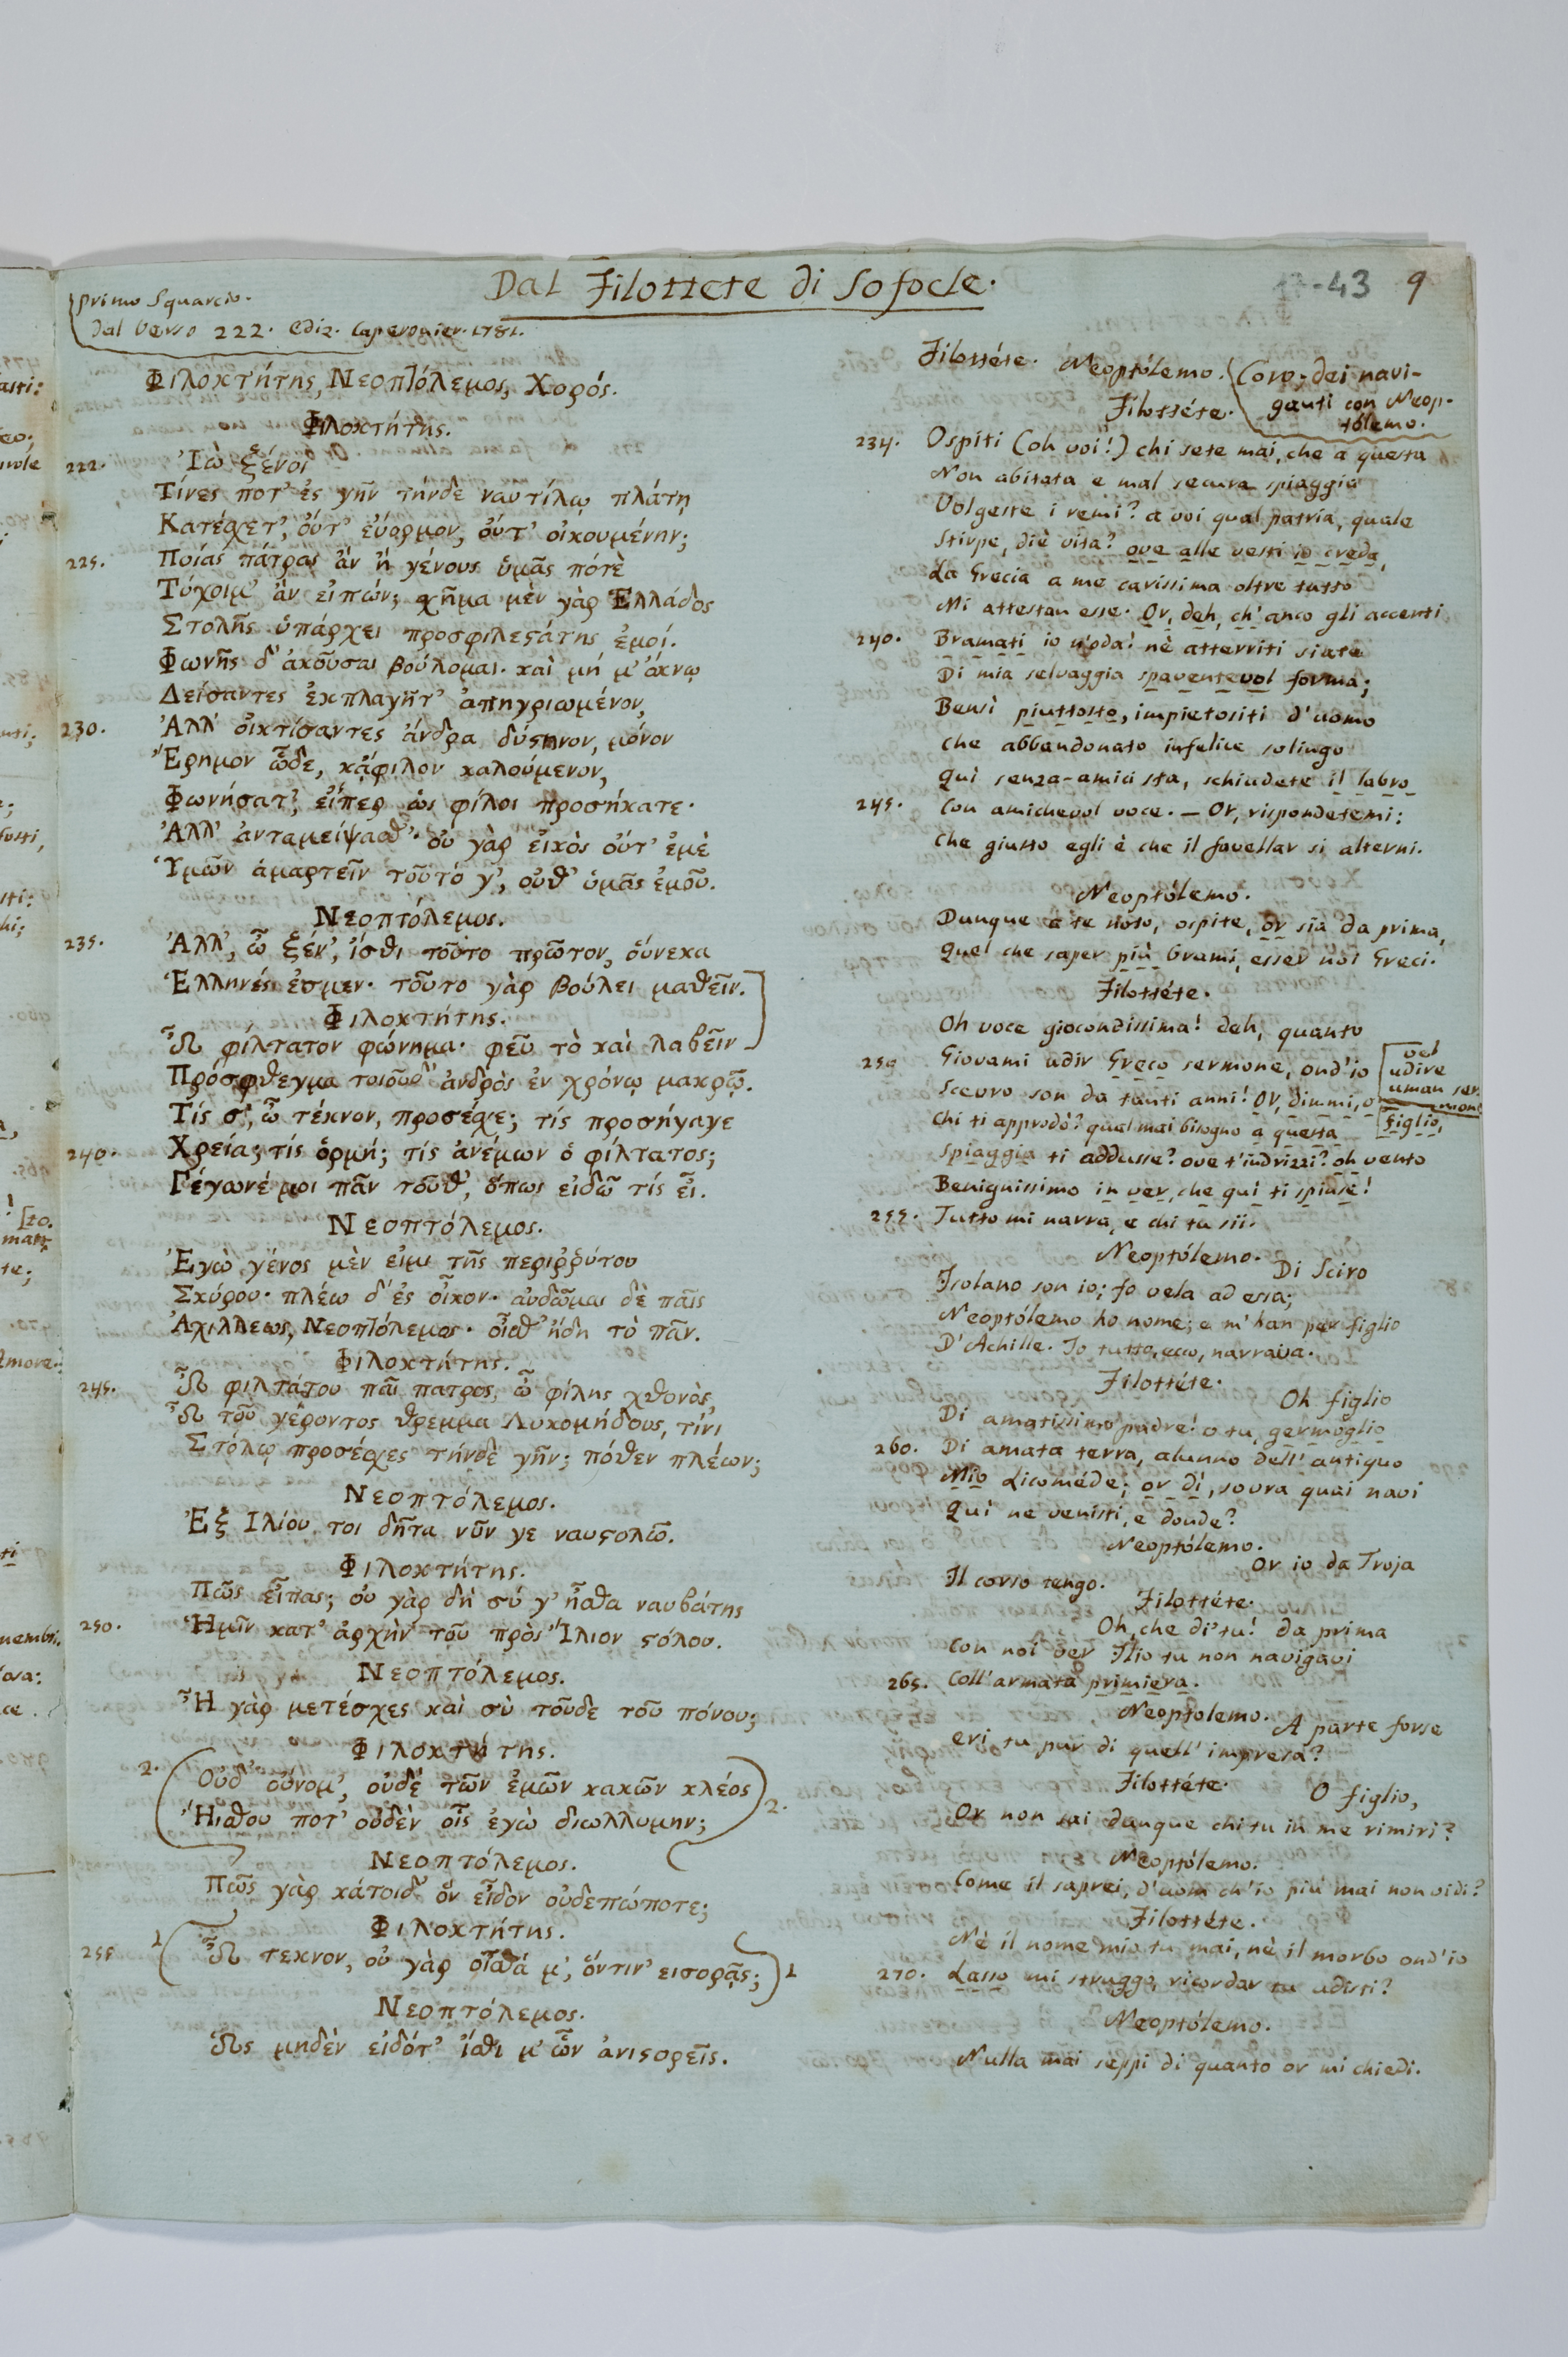 Dal Filottete di Sofocle.
17-43 9
Primo Squarcio.
Dal Verso 222. Ediz. Caperonier. 1781.
Φιλοκτήτης, Νεοπτόλεμος, Χορός.
Φιλοκτήτης.
222. Ἰὼ ξένοι
Τίνες ποτ' ἐς γῆν τήνδε ναυτίλῳ πλάτῃ
Κατέσχετ', οὔτ' εὔορμον, οὔτ' οἰκουμένην;
225. Ποίας πάτρας ἂν ἢ γένους ὑμᾶς πότὲ
Τύχοιμ' ἂν εἰπών; σχῆμα μὲν γὰρ Ἑλλάδος
Στολῆς ὑπάρχει προσφιλεϛάτης ἐμοί.
Φωνῆς δ' ἀκοῦσαι βούλομαι. καὶ μή μ' ὄκνῳ
Δείσαντες ἐκπλαγῆτ' ἀπηγριωμένον,
230. Ἀλλ' οἰκτίσαντες ἄνδρα δύϛηνον, μόνον
Ἔρημον ὧδε, κἄφιλον καλούμενον,
Φωνήσατ', εἴπερ ὡς φίλοι προσήκατε.
Ἀλλ' ἀνταμείψασθ'. οὐ γὰρ εἰκὸς οὔτ' ἐμὲ
Ὑμῶν ἁμαρτεῖν τοῦτό γ', οὔθ' ὑμᾶς ἐμοῦ.
Νεοπτόλεμος.
235. Ἀλλ', ὦ ξέν', ἴσθι τοῦτο πρῶτον, οὕνεκα
Ἕλληνές ἐσμεν. τοῦτο γὰρ βούλει μαθεῖν.
Φιλοκτήτης.
Ὦ φίλτατον φώνημα. φεῦ τὸ καὶ λαβεῖν
Πρόσφθεγμα τοιοῦδ' ἀνδρὸς ἐν χρόνῳ μακρῷ.
Τίς σ', ὦ τέκνον, προσέσχε; τίς προσήγαγε
240. Χρεία; τίς ὁρμή; τίς ἀνέμων ὁ φίλτατος;
Γέγωνέ μοι πᾶν τοῦθ', ὅπως εἰδῶ τίς εἶ.
Νεοπτόλεμος.
Ἐγὼ γένος μὲν εἰμι τῆς περιῤῥύτου
Σκύρου. πλέω δ' ἐς οἶκον. αὐδῶμαι δὲ παῖς
Ἀχιλλεως, Νεοπτόλεμος. οἶσθ' ἤδη τὸ πᾶν.
Φιλοκτήτης.
245. Ὦ φιλτάτου παῖ πατρος, ὦ φίλης χθονὸς,
Ὦ τοῦ γέροντος θρεμμα Λυκομήδους, τίνι
Στόλῳ προσέσχες τήνδὲ γῆν; πόθεν πλέων;
Νεοπτόλεμος.
Ἐξ Ἰλίου τοι δῆτα νῦν γε ναυϛολῶ.
Φιλοκτήτης.
Πῶς εἶπας; οὐ γὰρ δὴ σύ γ' ἦσθα ναυβάτης
250. Ἡμῖν κατ' ἀρχὴν τοῦ πρὸς Ἴλιον ϛόλου.
Νεοπτόλεμος.
Ἦ γὰρ μετέσχες καὶ σὺ τοῦδε τοῦ πόνου;
Φιλοκτήτης.
2. Οὐδ' οὔνομ', οὐδὲ τῶν ἐμῶν κακῶν κλέος
Ἤισθου ποτ' οὐδὲν οἷς ἐγὼ διωλλυμην; 2.
Νεοπτόλεμος.
Πῶς γὰρ κάτοιδ' ὅν εἶδον οὐδεπώποτε;
Φιλοκτήτης.
255 1 Ὦ τεκνον, οὐ γὰρ οἶσθά μ', ὅντιν' εισορᾷς; 1
Νεοπτόλεμος.
Ὡς μηδὲν εἰδότ' ἴσθι μ' ὧν ἀνιϛορεῖς.
Filottéte. Neoptólemo. Coro, dei navi-
ganti con Neop-
tólemo.
Filottéte.
234. Ospiti (oh voi!) chi sete mai, che a questa
Non abitata e mal secura spiaggia
Volgeste i remi? a voi qual patria, quale
Stirpe, diè vita? ove alle vesti io creda,
La Grecia a me carissima oltre tutto
Mi attestan esse. Or, deh, ch'anco gli accenti
240. Bramati io n'oda! nè atterriti siate
Di mia selvaggia spaventevol forma;
Bensì piuttosto, impietositi d'uomo
che abbandonato infelice solingo
Quì senza-amici sta, schiudete il labro
245. Con amichevol voce. — Or, rispondetemi:
Che giusto egli è che il favellar si alterni.
Neoptólemo.
Dunque a te noto, ospite, or sia da prima,
Quel che saper più brami, esser noi Greci.
Filottéte.
Oh voce giocondissima! deh, quanto
250 Giovami udir Greco sermone, ond'io
vel
udire
uman ser-
mone
Scevro son da tanti anni! Or, dimmi, o
Figlio,
Chi ti approdò? qual mai bisogno a questa
Spiaggia ti addusse? ove t'indrizzi? oh vento
Benignissimo in ver, che quì ti spinse!
255. Tutto mi narra, e chi tu sii.
Neoptólemo.
Di Sciro
Isolano son io; fo vela ad essa;
Neoptólemo ho nome; e m'han per figlio
D'Achille. Io tutto, ecco, narrava.
Filottéte.
Oh figlio
Di amatissimo padre! o tu, germoglio
260. Di amata terra, alunno dell'antiquo
Mio Licoméde; or dì, sovra quai navi
Quì ne venisti, e donde?
Neoptólemo.
Or io da Troja
Il corso tengo.
Filottéte.
Oh, che di' tu! da prima
Con noi ver Ilio tu non navigavi
265. Coll'armata primiera.
Neoptolemo.
A parte forse
eri tu pur di quell'impresa?
Filottéte.
O figlio,
Or non sai dunque chi tu in me rimiri?
Neoptólemo.
Come il saprei, d'uom ch'io più mai non vidi?
Filottéte.
Nè il nome mio tu mai, nè il morbo ond'io
270. Lasso mi struggo, ricordar tu udisti?
Neoptólemo.
Nulla mai seppi di quanto or mi chiedi.